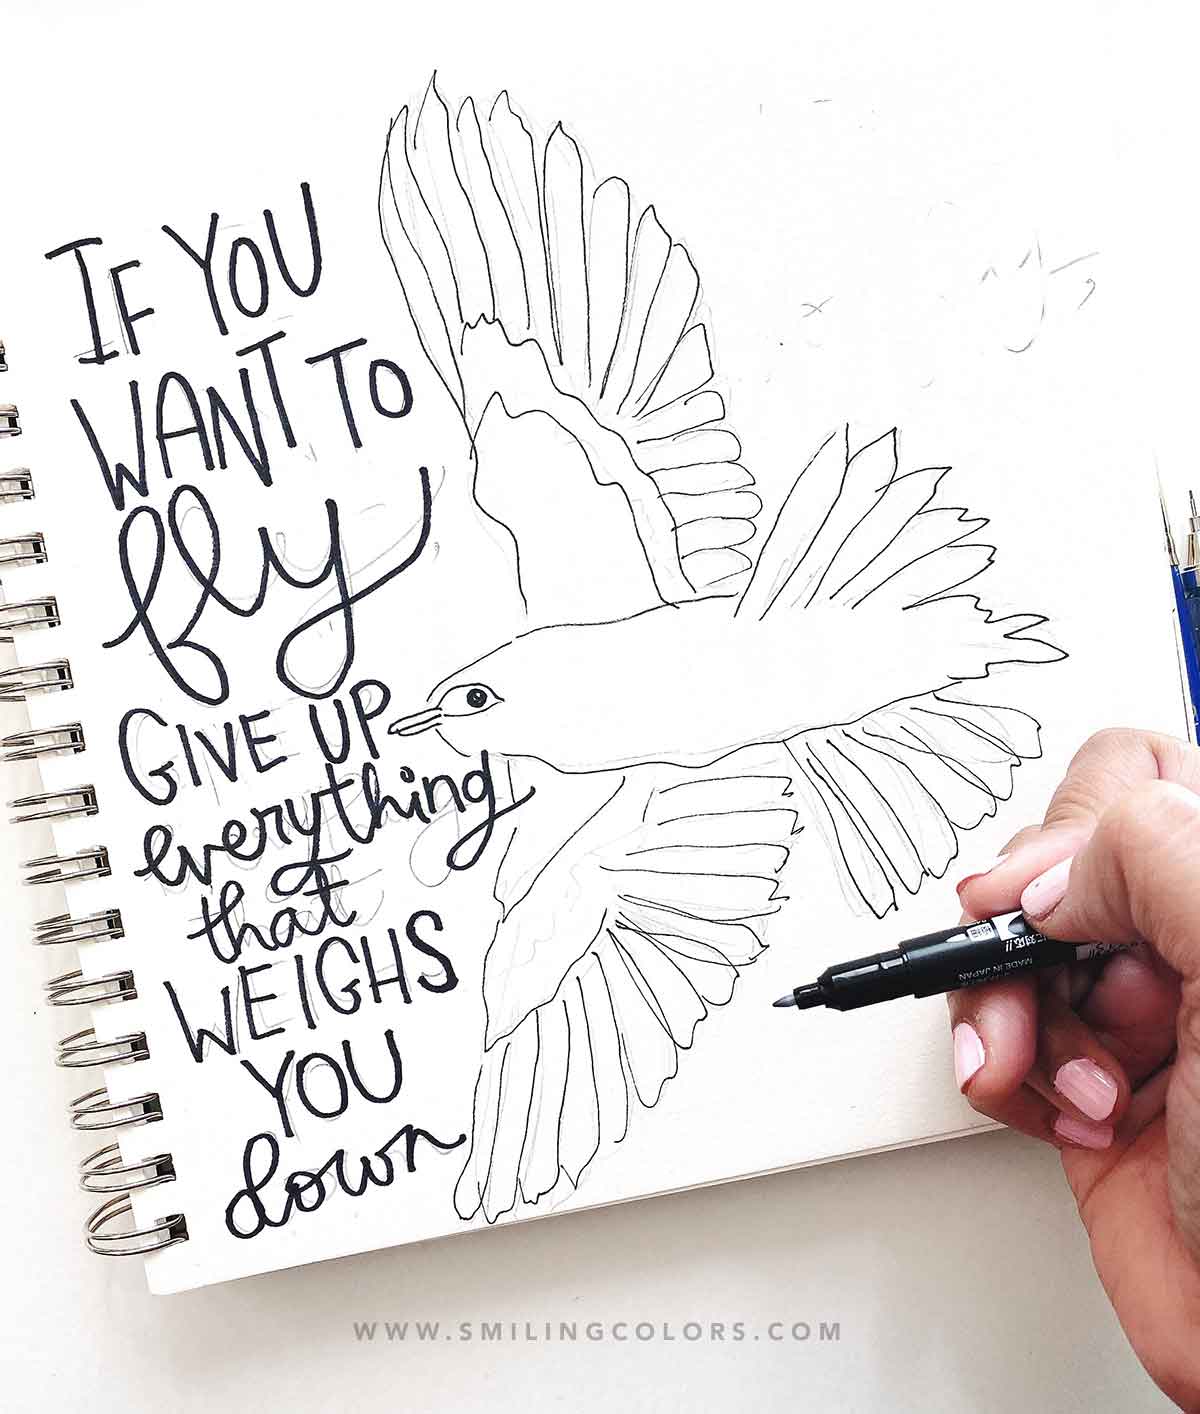 IF YOU
WANT TO
fly
GIVE UP
everything
that
WEIGHS
YOU
down
MADE IN JAPAN
WWW.SMILINGCOLORS.COM